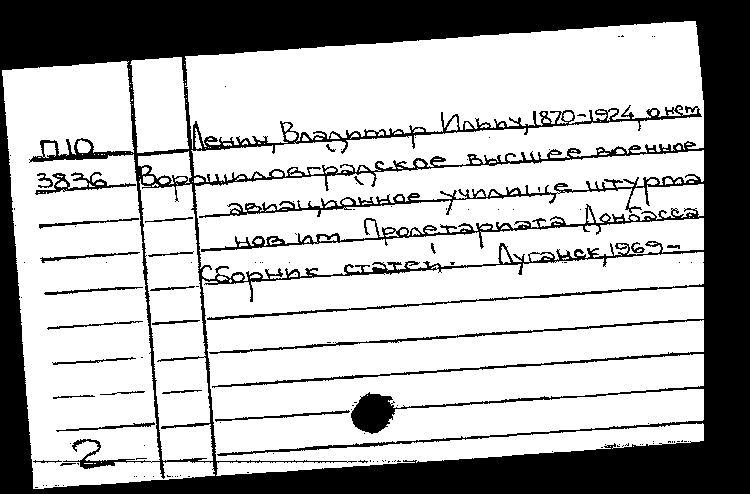 П10
Ленин, Владимир Ильич, 1870-1924, о нем
3836 Ворошиловградское высшее военное
авиационное училище штурма
нов им. Пролетариата Донбасса
Сборник статей. Луганск, 1969-
2